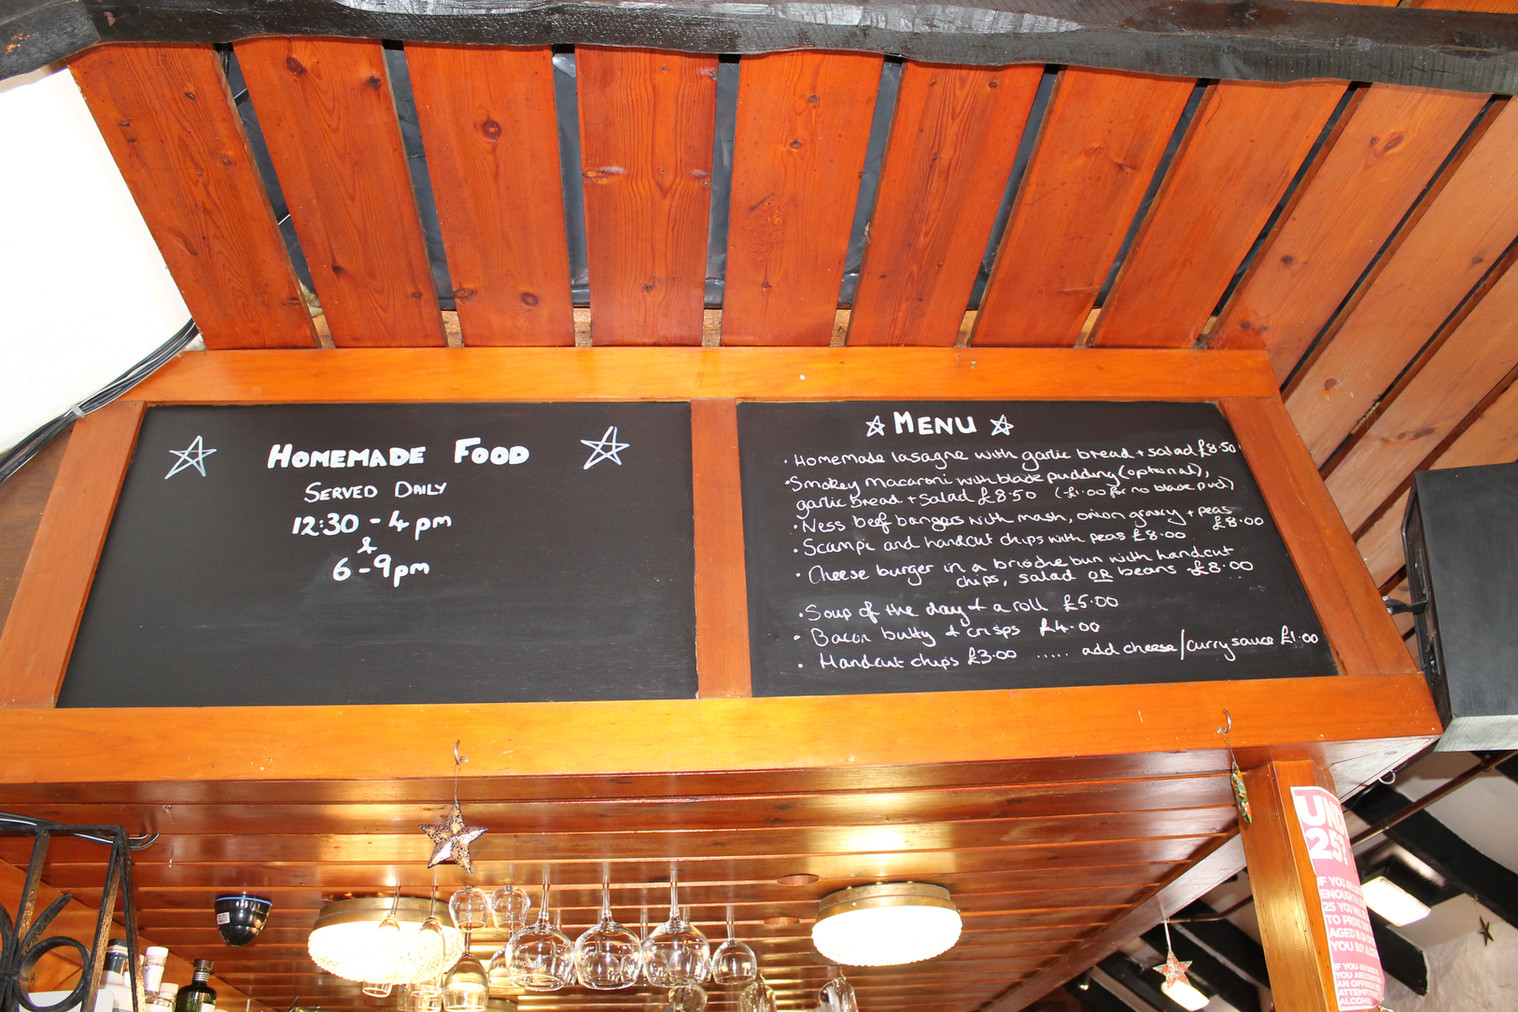 HOMEMADE FOOD
SERVED DAILY
12:30 - 4 pm
&
6 - 9pm
MENU
· Homemade lasagne with garlic bread + salad £8.50
· Smokey macaroni with black pudding (optional),
garlic bread + salad £8.50 (-£1.00 for no black pud)
· Ness beef bangers with mash, onion gravy + peas
£8.00
· Scampi and handcut chips with peas £8.00
· Cheese burger in a brioche bun with handcut
chips, salad OR beans £8.00
· Soup of the day + a roll £5.00
· Bacon butty + crisps £4.00
· Handcut chips £3.00 ..... add cheese/curry sauce £1.00
25?
IF YOU
ENOUGH
25 YOU
TO
AGED
YOU
IF YOU
YOU
AN
ATTEMPT
ALCOHOL